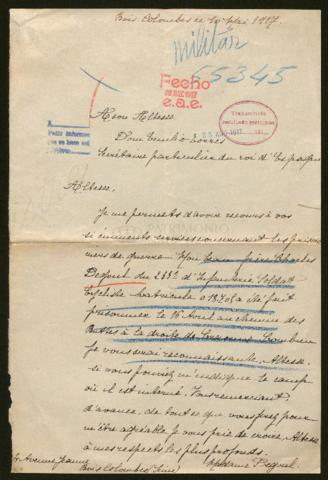 Bois Colombes le 19 Mai 1917.
militar
55345
Fecho
e.a.e.
Transmitida
A son Altesse
Don Emilio Torres
Secrétaire particulier du roi d'Espagne
Altesse,
Je me permets d'avoir recours à vos
si éminents services concernant les prison
niers de guerre. Mon beau frère Charles
du 288e d'Infanterie Soldat
Cycliste Matricule 018708 a été fait
prisonnier le 16 Avril au chemin des
Buttes à la droite de Soissons. Combien
je vous serai reconnaissante, Altesse
si vous pouviez m'indiquer le camp
où il est interné. Vous remerciant
d'avance de tout ce que vous ferez pour
m'être agréable. Je vous prie de croire, Altesse
à mes respects les plus profonds.
Madame
Avenue Jeanne
Bois Colombes (Seine)